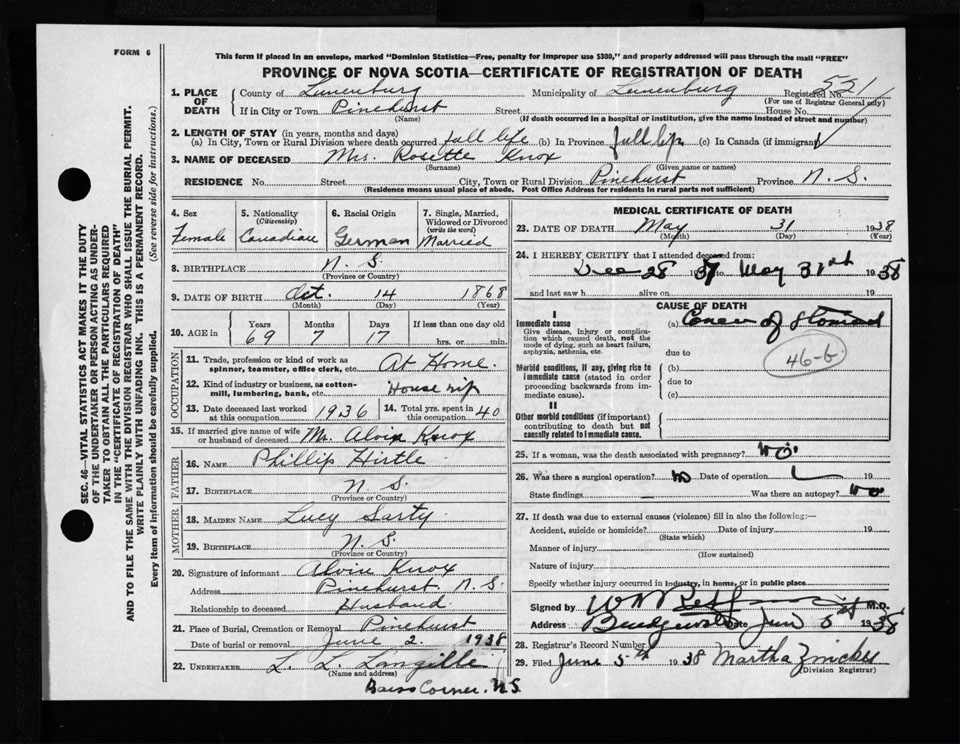 FORM 6
This form if placed in an envelope, marked "Dominion Statistics—Free, penalty for improper use $300," and properly addressed will pass through the mail "FREE"
PROVINCE OF NOVA SCOTIA—CERTIFICATE OF REGISTRATION OF DEATH
SEC. 46—VITAL STATISTICS ACT MAKES IT THE DUTY
OF THE UNDERTAKER OR PERSON ACTING AS UNDER-
TAKER TO OBTAIN ALL THE PARTICULARS REQUIRED
IN THE "CERTIFICATE OF REGISTRATION OF DEATH"
AND TO FILE THE SAME WITH THE DIVISION REGISTRAR WHO SHALL ISSUE THE BURIAL PERMIT.
WRITE PLAINLY WITH UNFADING INK. THIS IS A PERMANENT RECORD.
Every item of information should be carefully supplied. (See reverse side for instructions.)
1. PLACE OF DEATH County of Lunenburg Municipality of Lunenburg Registered No. 521
(For use of Registrar General only)
If in City or Town Pinehurst Street House No.
(Name) (If death occurred in a hospital or institution, give the name instead of street and number)
2. LENGTH OF STAY (in years, months and days)
(a) In City, Town or Rural Division where death occurred full life (b) In Province full life (c) In Canada (if immigrant)
3. NAME OF DECEASED Mrs. Rosette Knox
(Surname) (Given name or names)
RESIDENCE No. Street City, Town or Rural Division Pinehurst Province N. S.
(Residence means usual place of abode. Post Office Address for residents in rural parts not sufficient)
4. Sex Female
5. Nationality (Citizenship) Canadian
6. Racial Origin German
7. Single, Married, Widowed or Divorced (write the word) Married
8. BIRTHPLACE N. S.
(Province or Country)
9. DATE OF BIRTH Oct. 14 1868
(Month) (Day) (Year)
10. AGE in Years 69 Months 7 Days 17 If less than one day old hrs. or min.
OCCUPATION
11. Trade, profession or kind of work as spinner, teamster, office clerk, etc. At Home.
12. Kind of industry or business, as cotton-mill, lumbering, bank, etc.
13. Date deceased last worked at this occupation 1936 14. Total yrs. spent in this occupation 40
15. If married give name of wife or husband of deceased Mr. Alvin Knox
FATHER
16. NAME Phillip Hirtle
17. BIRTHPLACE N. S.
(Province or Country)
MOTHER
18. MAIDEN NAME Lucy Sarty
19. BIRTHPLACE N. S.
(Province or Country)
20. Signature of informant Alvin Knox
Address Pinehurst N. S.
Relationship to deceased Husband.
21. Place of Burial, Cremation or Removal Pinehurst
Date of burial or removal June 2 1938
22. UNDERTAKER L. L. Langille
(Name and address)
Corner. N.S.
MEDICAL CERTIFICATE OF DEATH
23. DATE OF DEATH May 31 1938
(Month) (Day) (Year)
24. I HEREBY CERTIFY that I attended deceased from:
Dec 28 1937 to May 31st 1938
and last saw h alive on 19
CAUSE OF DEATH
I
Immediate cause
Give disease, injury or complication which caused death, not the mode of dying, such as heart failure, asphyxia, asthenia, etc.
(a) Cancer of stomach
due to
46-b.
Morbid conditions, if any, giving rise to immediate cause (stated in order proceeding backwards from immediate cause).
(b)
due to
(c)
II
Other morbid conditions (if important) contributing to death but not causally related to immediate cause.
25. If a woman, was the death associated with pregnancy? No.
26. Was there a surgical operation? No Date of operation 19
State findings Was there an autopsy? No
27. If death was due to external causes (violence) fill in also the following:—
Accident, suicide or homicide? Date of injury 19
(State which)
Manner of injury
(How sustained)
Nature of injury
Specify whether injury occurred in industry, in home, or in public place
Signed by M.D.
Address Bridgewater Date 1938
28. Registrar's Record Number
29. Filed June 5th 1938 Martha Zwicker
(Division Registrar)